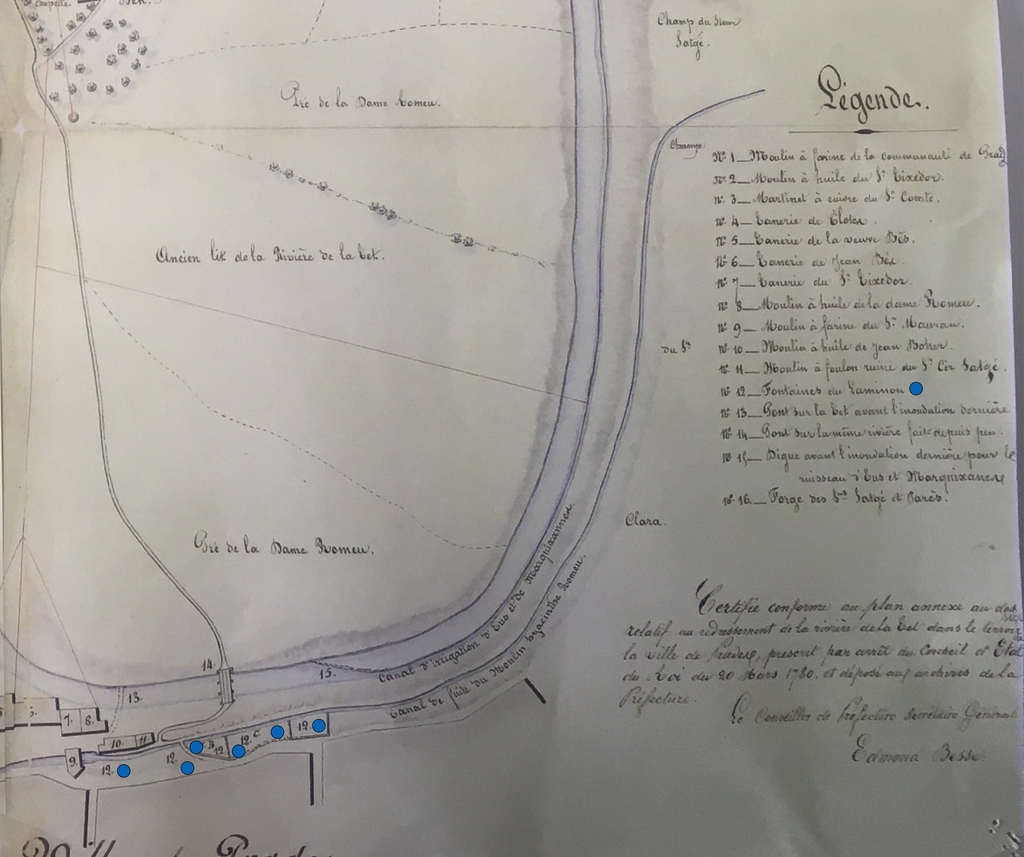 Champ du Sieur
Satgé.
Pré de la Dame Romeu.
Légende.
Champ
N° 1 — Moulin à farine de la communauté de
N° 2 — Moulin à huile du Sr Tixedor.
n° 3 — Martinet à cuivre du Sr Comte.
n° 4 — Tanerie de
n° 5 — Tanerie de la veuve Bès.
N° 6 — Tanerie de Jean Bès.
n° 7 — Tanerie du Sr Tixedor.
n° 8 — Moulin à huile de la dame Romeu.
n° 9 — Moulin à farine du Sr Mauran.
n° 10 — Moulin à huile de Jean Boher.
n° 11 — Moulin à foulon ruiné du Sr Cir Satgé.
n° 12 — Fontaines du Laminou
n° 13 — Pont sur la Tet avant l'inondation dernière
n° 14 — Pont sur la même rivière fait depuis peu.
n° 15 — Digue avant l'inondation dernière pour le
ruisseau d'Eus et Marquixanes
n° 16 — Forge des Srs Satgé et Parès.
Ancien lit de la Rivière de la Tet.
du Sr
Clara.
Pré de la Dame Romeu.
Canal d'irrigation d'Eus et de Marquixannes.
Canal de fuite du Moulin hyacinthe Romeu.
Certifié conforme au plan annexe au
relatif au redressement de la rivière de la Tet dans le terroir
la ville de Prades, prescrit par arrêt du Conseil d'Etat
du Roi du 20 Mars 1780, et déposé aux archives de la
Préfecture.
Le Conseiller de Préfecture Secrétaire Général
Edmond Besse.
14.
15.
13.
7. 8.
10. 11
9.
12.
12.
12
12 c
12